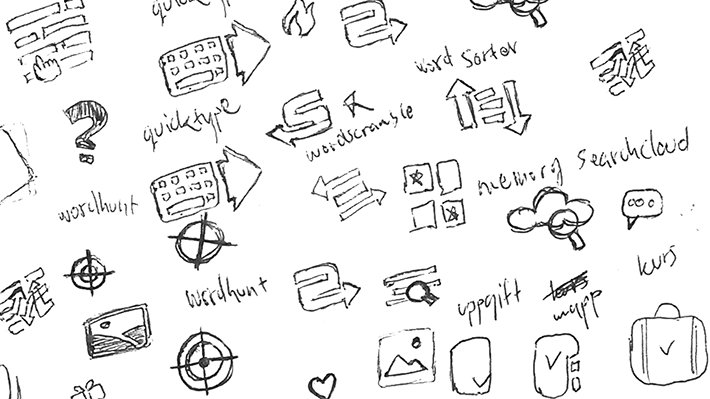 quicktype
word sorter
quicktype
wordscramble
memory
searchcloud
wordhunt
wordhunt
kurs
uppgift
mapp